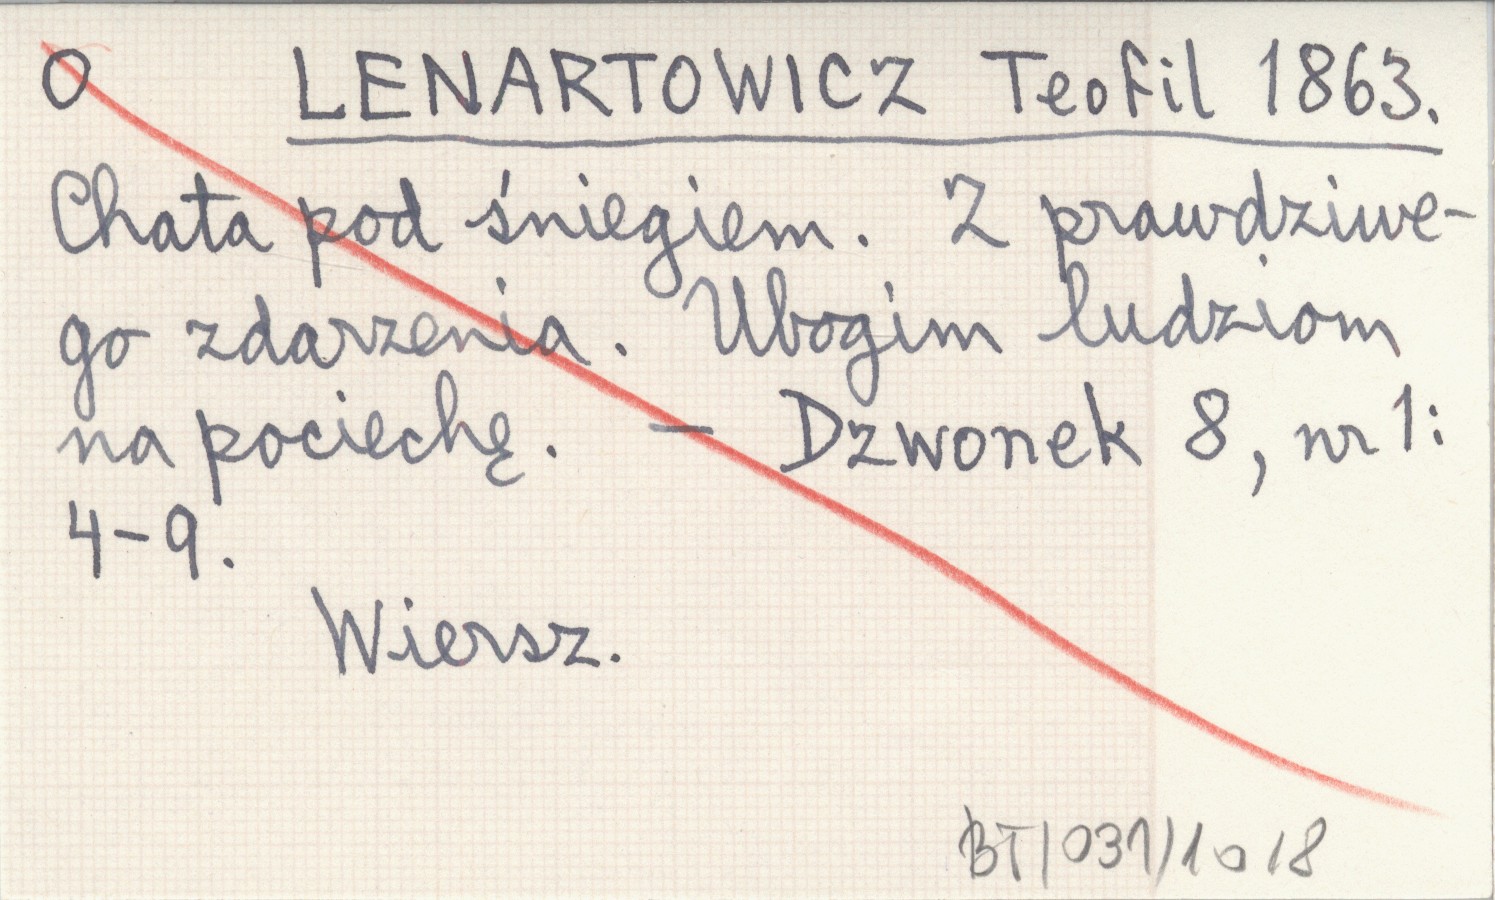 O LENARTOWICZ Teofil 1863.
Chata pod śniegiem. Z prawdziwe-
go zdarzenia. Ubogim ludziom
na pociechę. – Dzwonek 8, nr 1:
4–9.
Wiersz.
BT/031/1018